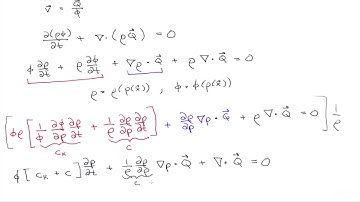 v⃗ = Q⃗/ϕ
∂(ρϕ)/∂t + ∇·(ρQ⃗) = 0
ϕ ∂ρ/∂t + ρ ∂ϕ/∂t + ∇ρ·Q⃗ + ρ∇·Q⃗ = 0
ρ = ρ(p(x⃗)) , ϕ = ϕ(p(x⃗))
[ϕρ [1/ϕ ∂ϕ/∂p + 1/ρ ∂ρ/∂p] ∂p/∂t + ∂ρ/∂p ∇p·Q⃗ + ρ∇·Q⃗ = 0] 1/ρ
cᵣ c
ϕ[cᵣ + c] ∂p/∂t + 1/ρ ∂ρ/∂p ∇p·Q⃗ + ∇·Q⃗ = 0
c